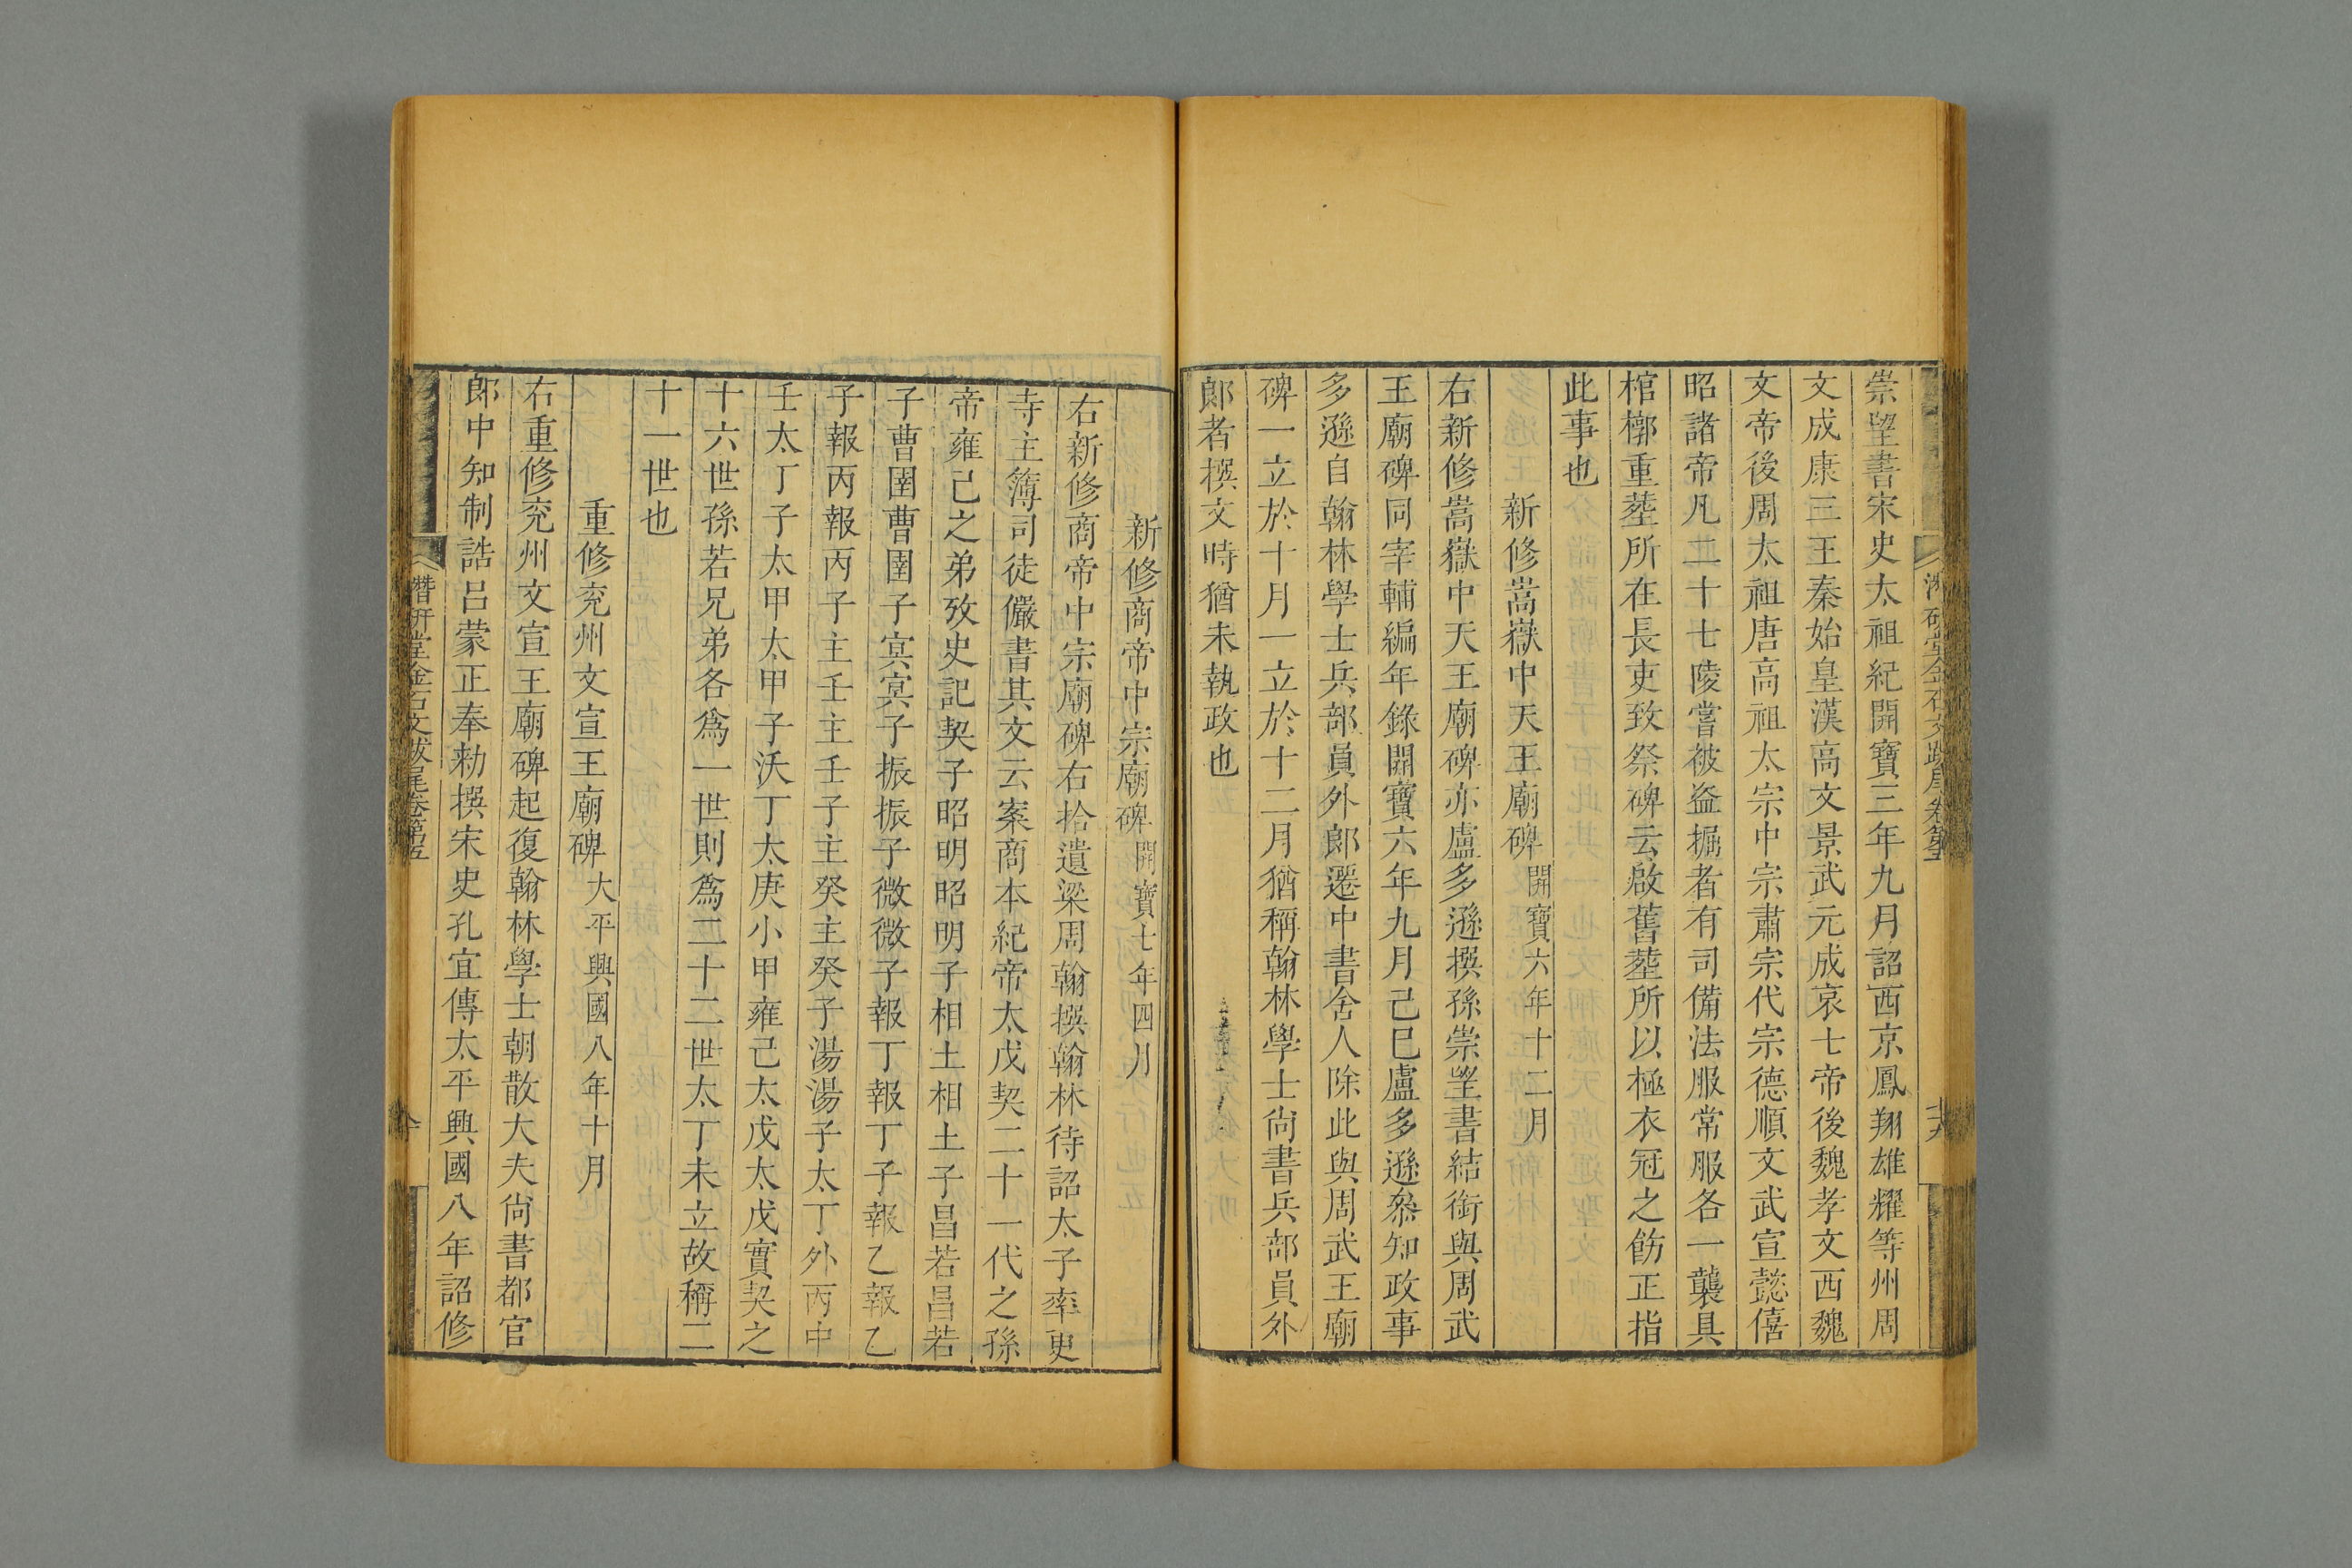 崇望書宋史太祖紀開寶三年九月詔西京鳳翔雄耀等州周
文成康三王秦始皇漢高文景武元成哀七帝後魏孝文西魏
文帝後周太祖唐高祖太宗中宗肅宗代宗德順文武宣懿僖
昭諸帝凡二十七陵嘗被盜掘者有司備法服常服各一襲具
棺槨重塟所在長吏致祭碑云啟舊塟所以極衣冠之飭正指
此事也
新修嵩嶽中天王廟碑開寶六年十二月
右新修嵩嶽中天王廟碑亦盧多遜撰孫崇望書結銜與周武
王廟碑同宰輔編年錄開寶六年九月己巳盧多遜叅知政事
多遜自翰林學士兵部員外郎遷中書舍人除此與周武王廟
碑一立於十月一立於十二月猶稱翰林學士尙書兵部員外
郎者撰文時猶未執政也
新修商帝中宗廟碑開寶七年四月
右新修商帝中宗廟碑右拾遺梁周翰撰翰林待詔太子率更
寺主簿司徒儼書其文云案商本紀帝太戊契二十一代之孫
帝雍己之弟攷史記契子昭明昭明子相土相土子昌若昌若
子曹圉曹圉子冥冥子振振子微微子報丁報丁子報乙報乙
子報丙報丙子主壬主壬子主癸主癸子湯湯子太丁外丙中
壬太丁子太甲太甲子沃丁太庚小甲雍己太戊太戊實契之
十六世孫若兄弟各爲一世則爲二十二世太丁未立故稱二
十一世也
重修兖州文宣王廟碑大平興國八年十月
右重修兖州文宣王廟碑起復翰林學士朝散大夫尙書都官
郎中知制誥呂蒙正奉勑撰宋史孔宜傳太平興國八年詔修
潛研堂金石文跋尾卷第五